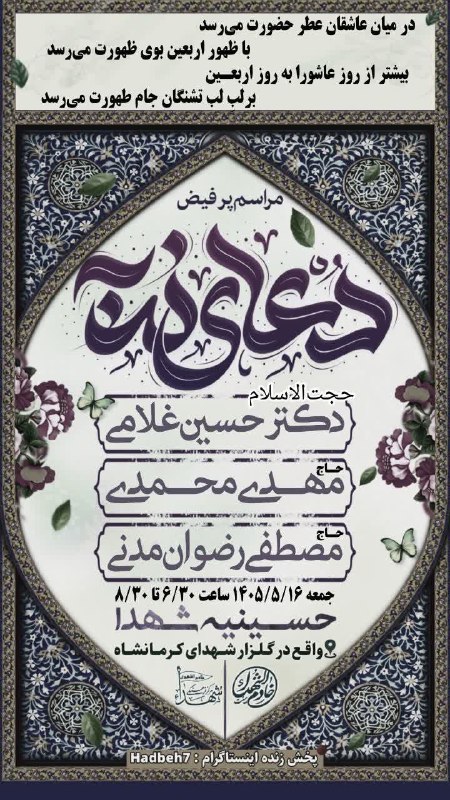 در میان عاشقان عطر حضورت می‌رسد
با ظهور اربعین بوی ظهورت می‌رسد
بیشتر از روز عاشورا به روز اربعـین
برلب لب تشنگان جام طهورت می‌رسد
مراسم پرفیض
دعای ندبه
حجت‌الاسلام
دکتر حسین غلامی
حاج
مهدی محمدی
حاج
مصطفی رضوان مدنی
جمعه ۱۴۰۵/۵/۱۶ ساعت ۶/۳۰ تا ۸/۳۰
حسینیه شهدا
واقع در گلزار شهدای کرمانشاه
پخش زنده اینستاگرام : Hadbeh7